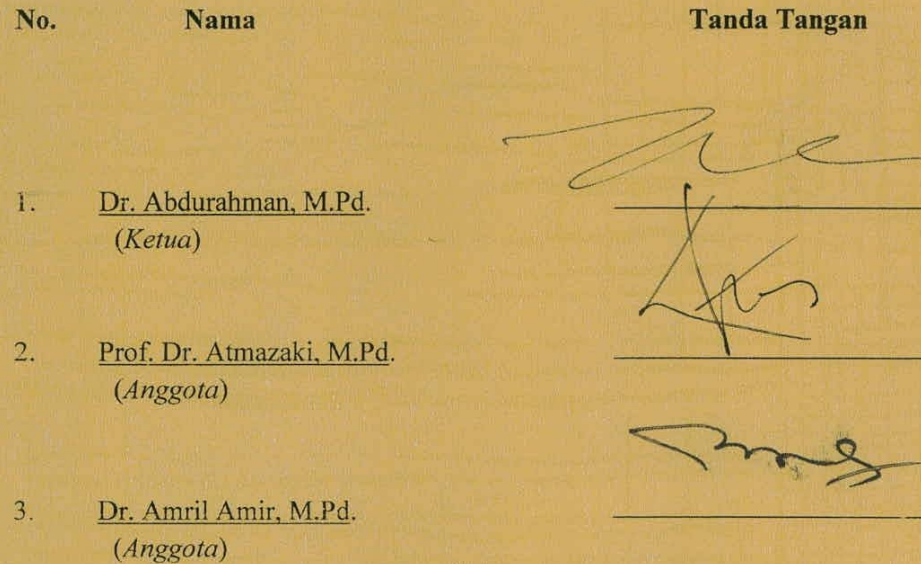 No. Nama Tanda Tangan
1. Dr. Abdurahman, M.Pd.
(Ketua)
2. Prof. Dr. Atmazaki, M.Pd.
(Anggota)
3. Dr. Amril Amir, M.Pd.
(Anggota)